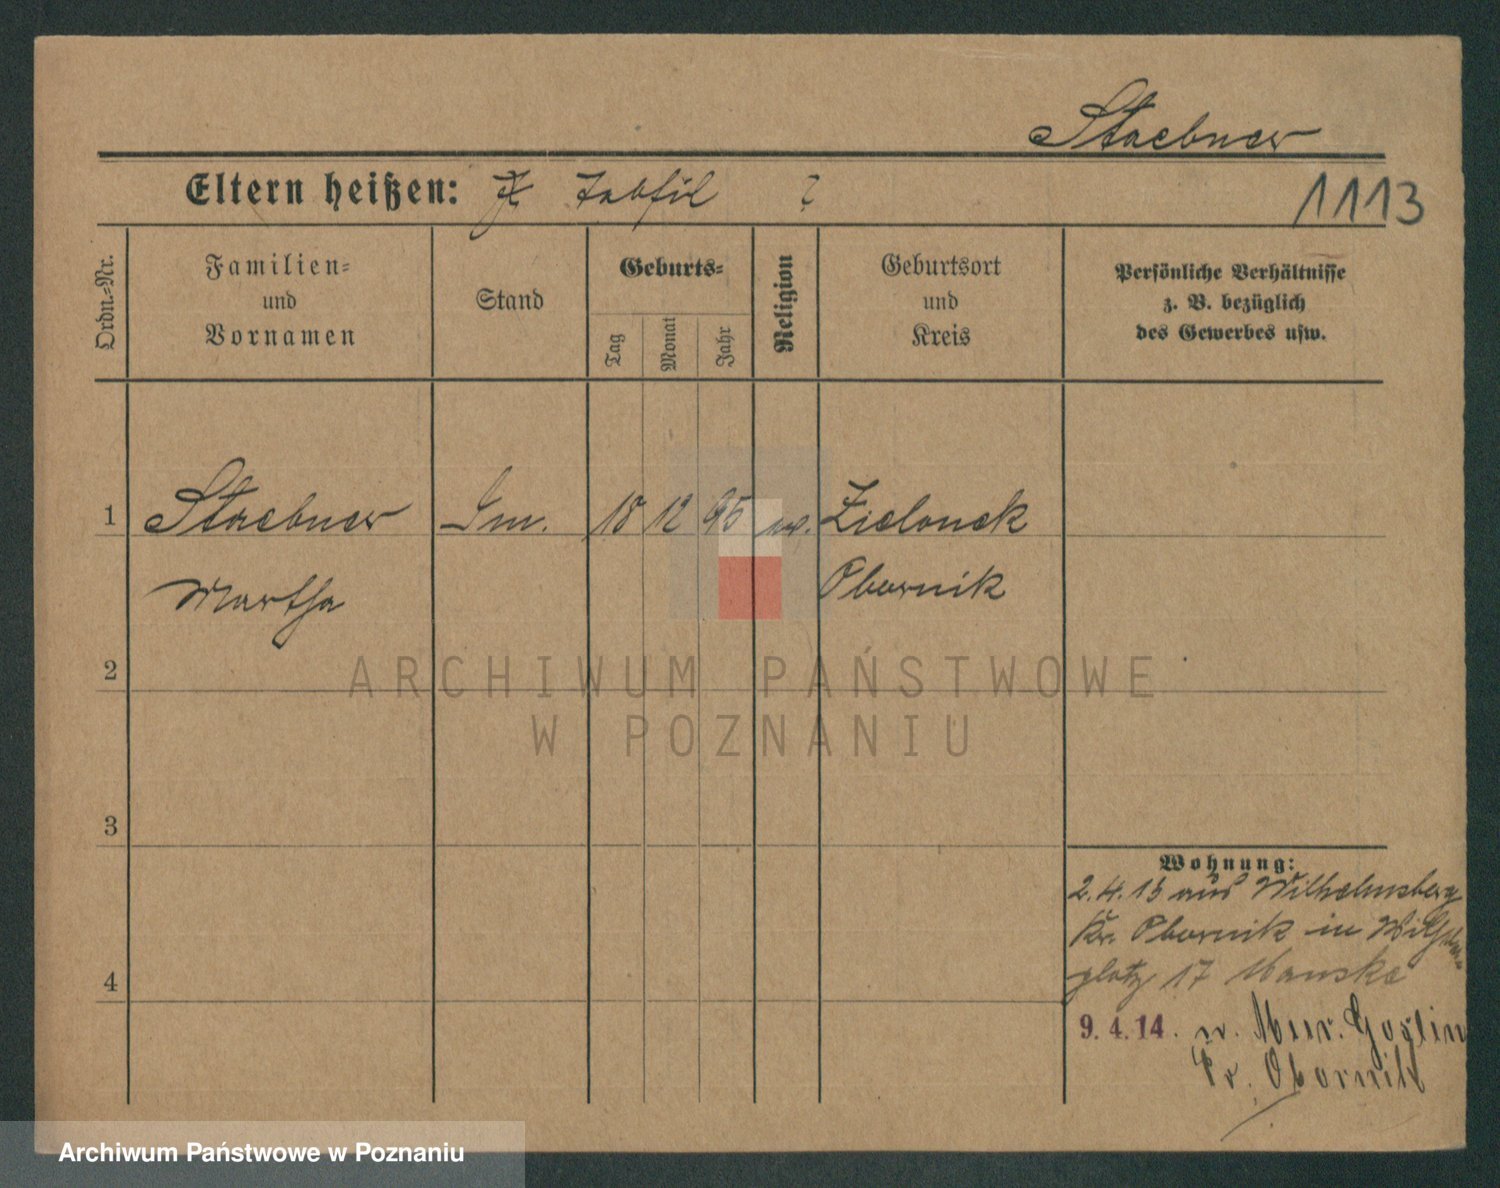 Staebner
Eltern heißen: ?
1113
Ordn.-Nr.
Familien-
und
Vornamen
Stand
Geburts-
Tag
Monat
Jahr
Religion
Geburtsort
und
Kreis
Persönliche Verhältnisse
z. B. bezüglich
des Gewerbes usw.
1 Staebner 12 95 Zielonek
Martha Obornik
2
ARCHIWUM PAŃSTWOWE
W POZNANIU
3
4
Wohnung:
2.4.13 aus Wilhelmsberg
Kr. Obornik in
platz 17 Manske
9.4.14. n. Mur. Goslin
Kr. Obornik
Archiwum Państwowe w Poznaniu